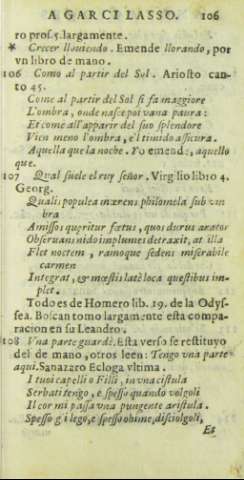 A GARCI LASSO. 106
ro pros.5.largamente.
* Crecer lloviendo. Emende llorando, por
vn libro de mano.
106 Como al partir del Sol. Ariosto can-
to 45.
Come al partir del Sol si fa maggiore
L'ombra, onde nasce poi vana paura:
Et come all'apparir del suo splendore
Vien meno l'ombra, e'l timido assicura.
Aquella que la noche. Yo emende, aquello
que.
107 Qual suele el ruy señor. Virgilio libro 4.
Georg.
Qualis populea mærens philomela sub vm
bra
Amissos queritur fœtus, quos durus arator
Obseruans nido implumes detraxit, at illa
Flet noctem, ramoque sedens miserabile
carmen
Integrat, & mœstis latè loca questibus im-
plet.
Todo es de Homero lib. 19. de la Odys-
sea. Boscan tomo largamente esta compa-
racion en su Leandro.
108 Vna parte guardè. Esta verso se restituyo
del de mano, otros leen: Tengo vna parte
aqui. Sanazaro Ecloga vltima.
I tuoi capelli o Filli, in vna cistula
Serbati tengo, e spesso quando volgoli
Il cor mi passa vna pungente aristula.
Spesso gli lego, e spesso ohime, disciolgoli,
Et